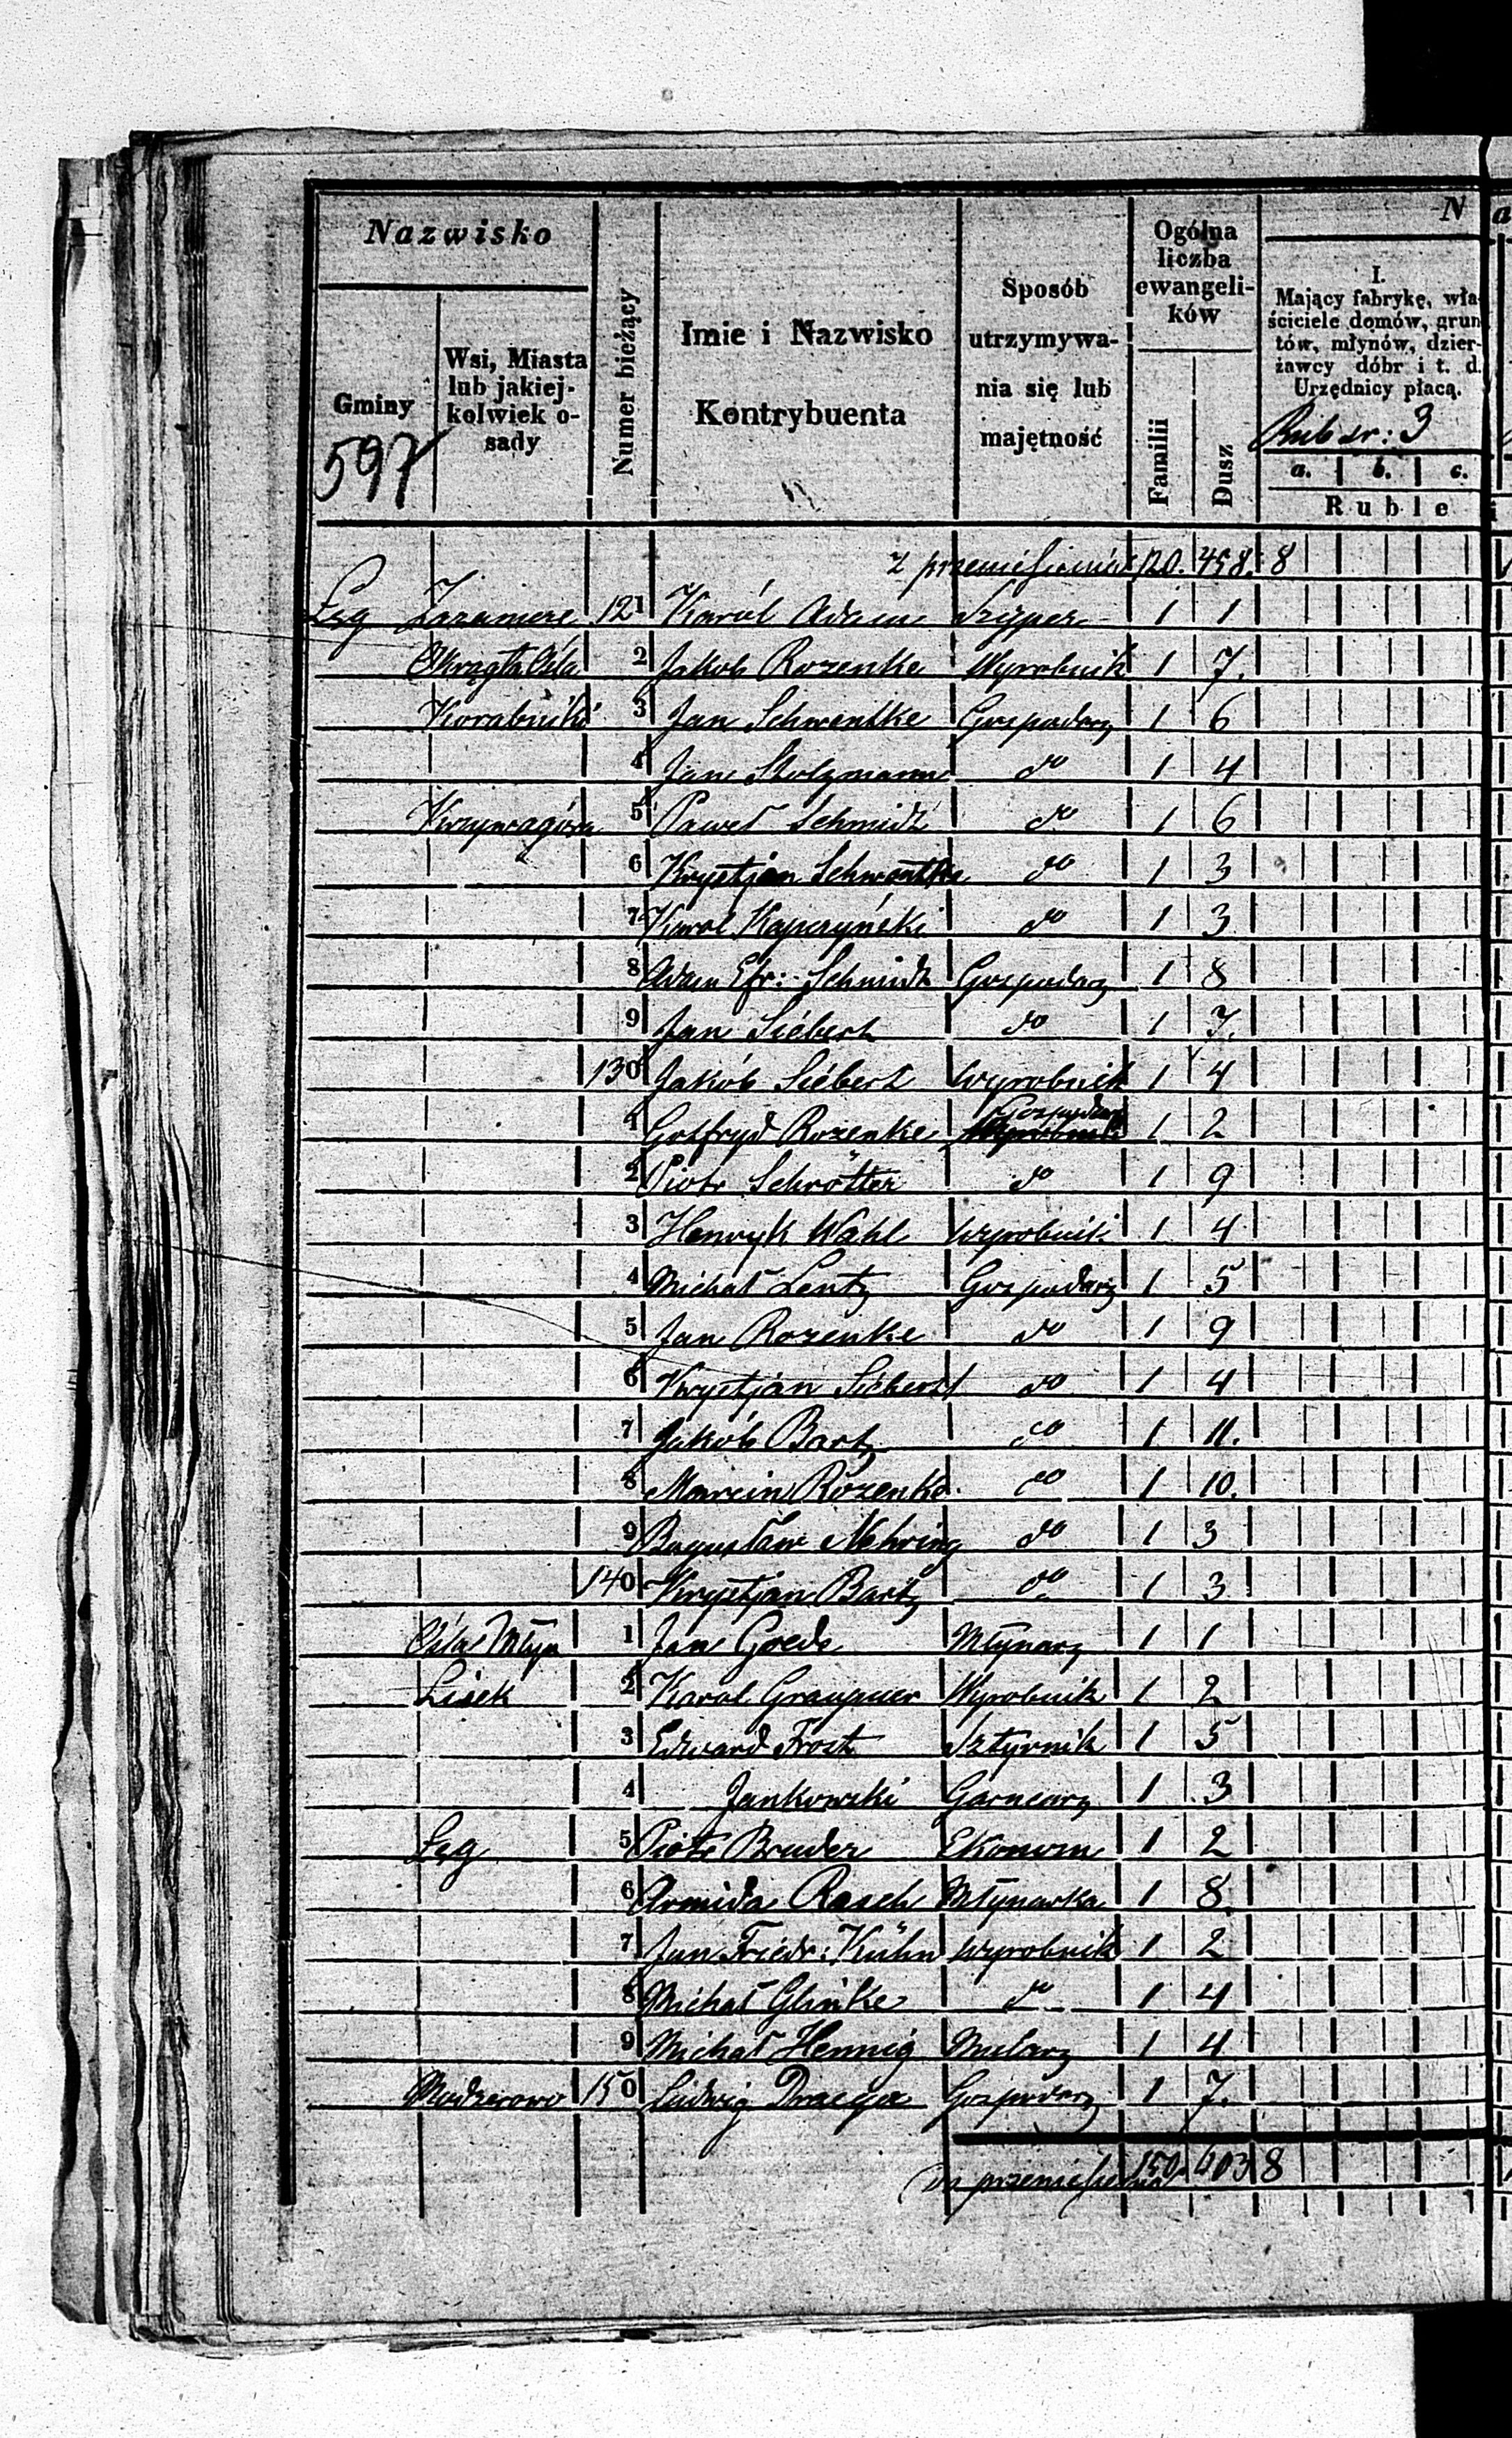 Nazwisko
Gminy
597
Wsi, Miasta lub jakiej-kolwiek o-sady
Numer bieżący
Imie i Nazwisko Kontrybuenta
Sposób utrzymywa-nia się lub majętność
Ogólna liczba ewangeli-ków
Familii
Dusz
N a
I.
Mający fabrykę, wła-
ściciele domów, grun
tów, młynów, dzier-
żawcy dóbr i t. d.
Urzędnicy płacą.
Rub sr: 3
a. b. c.
Ruble
z przeniesienia 120. 458. 8
Łęg Zazamcze 121 Karól Adam Szyper 1 1
2 Jakob Rozenke Wyrobnik 1 7.
Korabniki 3 Jan Schwentke Gospodarz 1 6
4 Jan Stolzmann do 1 4
Krzywagóra 5 Paweł Schmidt do 1 6
6 Krystjan Schwentke do 1 3
7 Karol Kapczyński do 1 3
8 Adam Efr: Schmidt Gospodarz 1 8
9 Jan Siébert do 1 7.
130 Jakób Siébert Wyrobnik 1 4
1 Gotfryd Rozenke Gospodarz Wyrobnik 1 2
2 Piotr Schrötter do 1 9
3 Henryk Wahl Wyrobnik 1 4
4 Michał Lentz Gospodarz 1 5
5 Jan Rozenke do 1 9
6 Krystjan Siébert do 1 4
7 Jakób Bartz do 1 11.
8 Marcin Rozenke do 1 10.
9 Bogusław Mehring do 1 3
140 Krystjan Bartz do 1 3
Młyn 1 Jan Goede Młynarz 1 1
Lisek 2 Karol Graupner Wyrobnik 1 2
3 Edward Frost Sztyrnik 1 5
4 Jankowski Garncarz 1 3
Łęg 5 Piotr Bruder Ekonom 1 2
6 Armida Rasch Młynarka 1 8.
7 Jan Friedr: Kühn Wyrobnik 1 2
8 Michał Glinke do 1 4
9 Michał Hennig Mularz 1 4
Modzerowo 150 Ludwig Draeger Gospodarz 1 7.
Do przeniesienia 150. 603 8